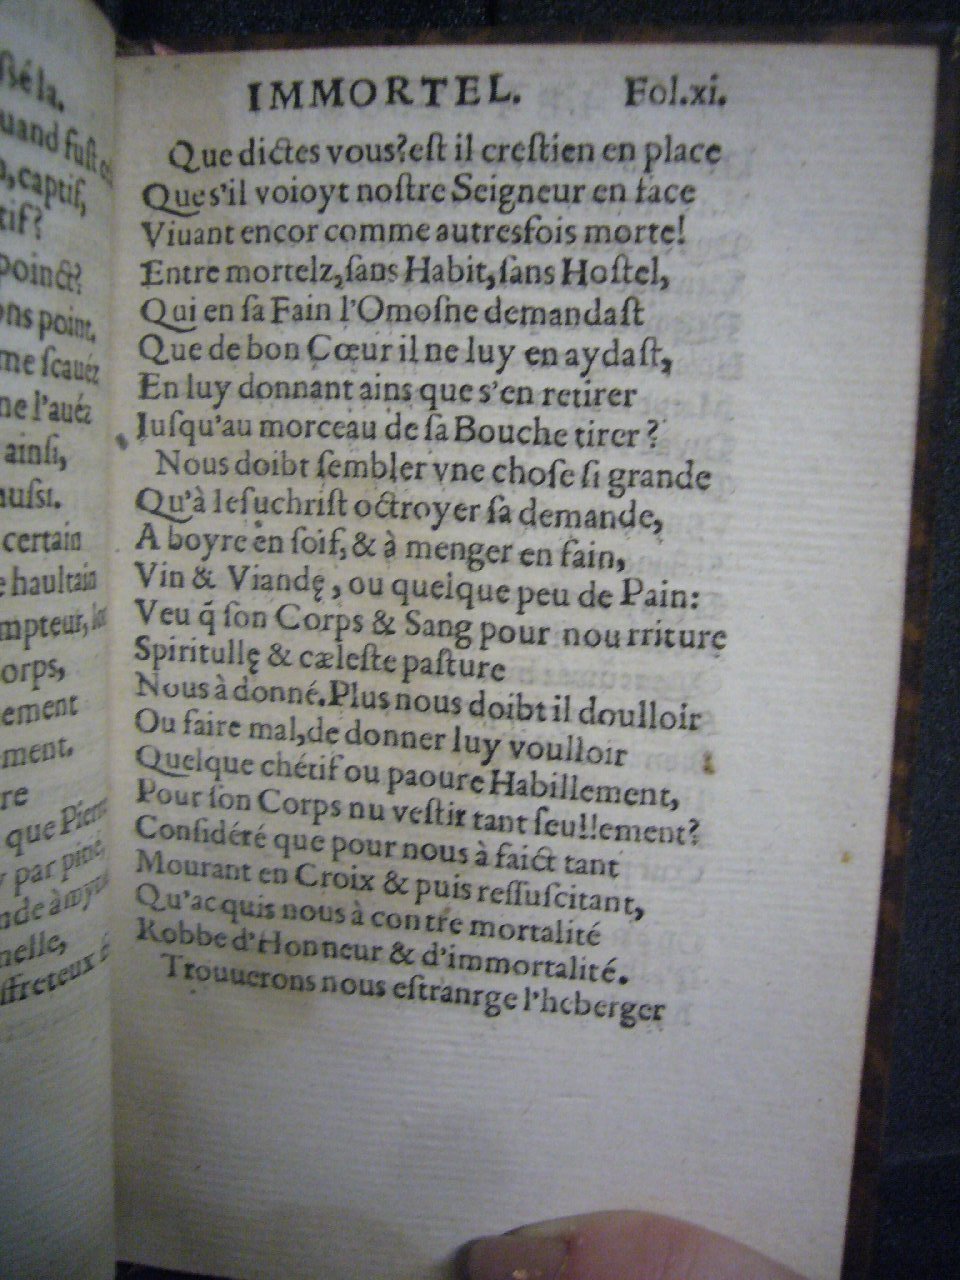 ßé la.
uand fuſt
captif,
tif?
poinct?
ons point.
me ſcauéz
ne l'auéz
ainſi,
auſsi.
certain
e haultain
mpteur,
orps,
ement
ement.
re
que Pierre
par pitié,
nelle,
ffreteux
IMMORTEL. Fol.xi.
Que dictes vous?eſt il creſtien en place
Que s'il voioyt noſtre Seigneur en face
Viuant encor comme autresfois mortel
Entre mortelz,ſans Habit,ſans Hoſtel,
Qui en ſa Fain l'Omoſne demandaſt
Que de bon Cœur il ne luy en aydaſt,
En luy donnant ains que s'en retirer
Iuſqu'au morceau de ſa Bouche tirer?
Nous doibt ſembler vne choſe ſi grande
Qu'à Ieſuchriſt octroyer ſa demande,
A boyre en ſoif, & à menger en fain,
Vin & Viandę, ou quelque peu de Pain:
Veu q̃ ſon Corps & Sang pour nourriture
Spiritullę & cæleſte paſture
Nous à donné. Plus nous doibt il doulloir
Ou faire mal,de donner luy voulloir
Quelque chétif ou paoure Habillement,
Pour ſon Corps nu veſtir tant ſeullement?
Conſidéré que pour nous à faict tant
Mourant en Croix & puis reſſuſcitant,
Qu'acquis nous à contre mortalité
Robbe d'Honneur & d'immortalité.
Trouuerons nous eſtranrge l'heberger